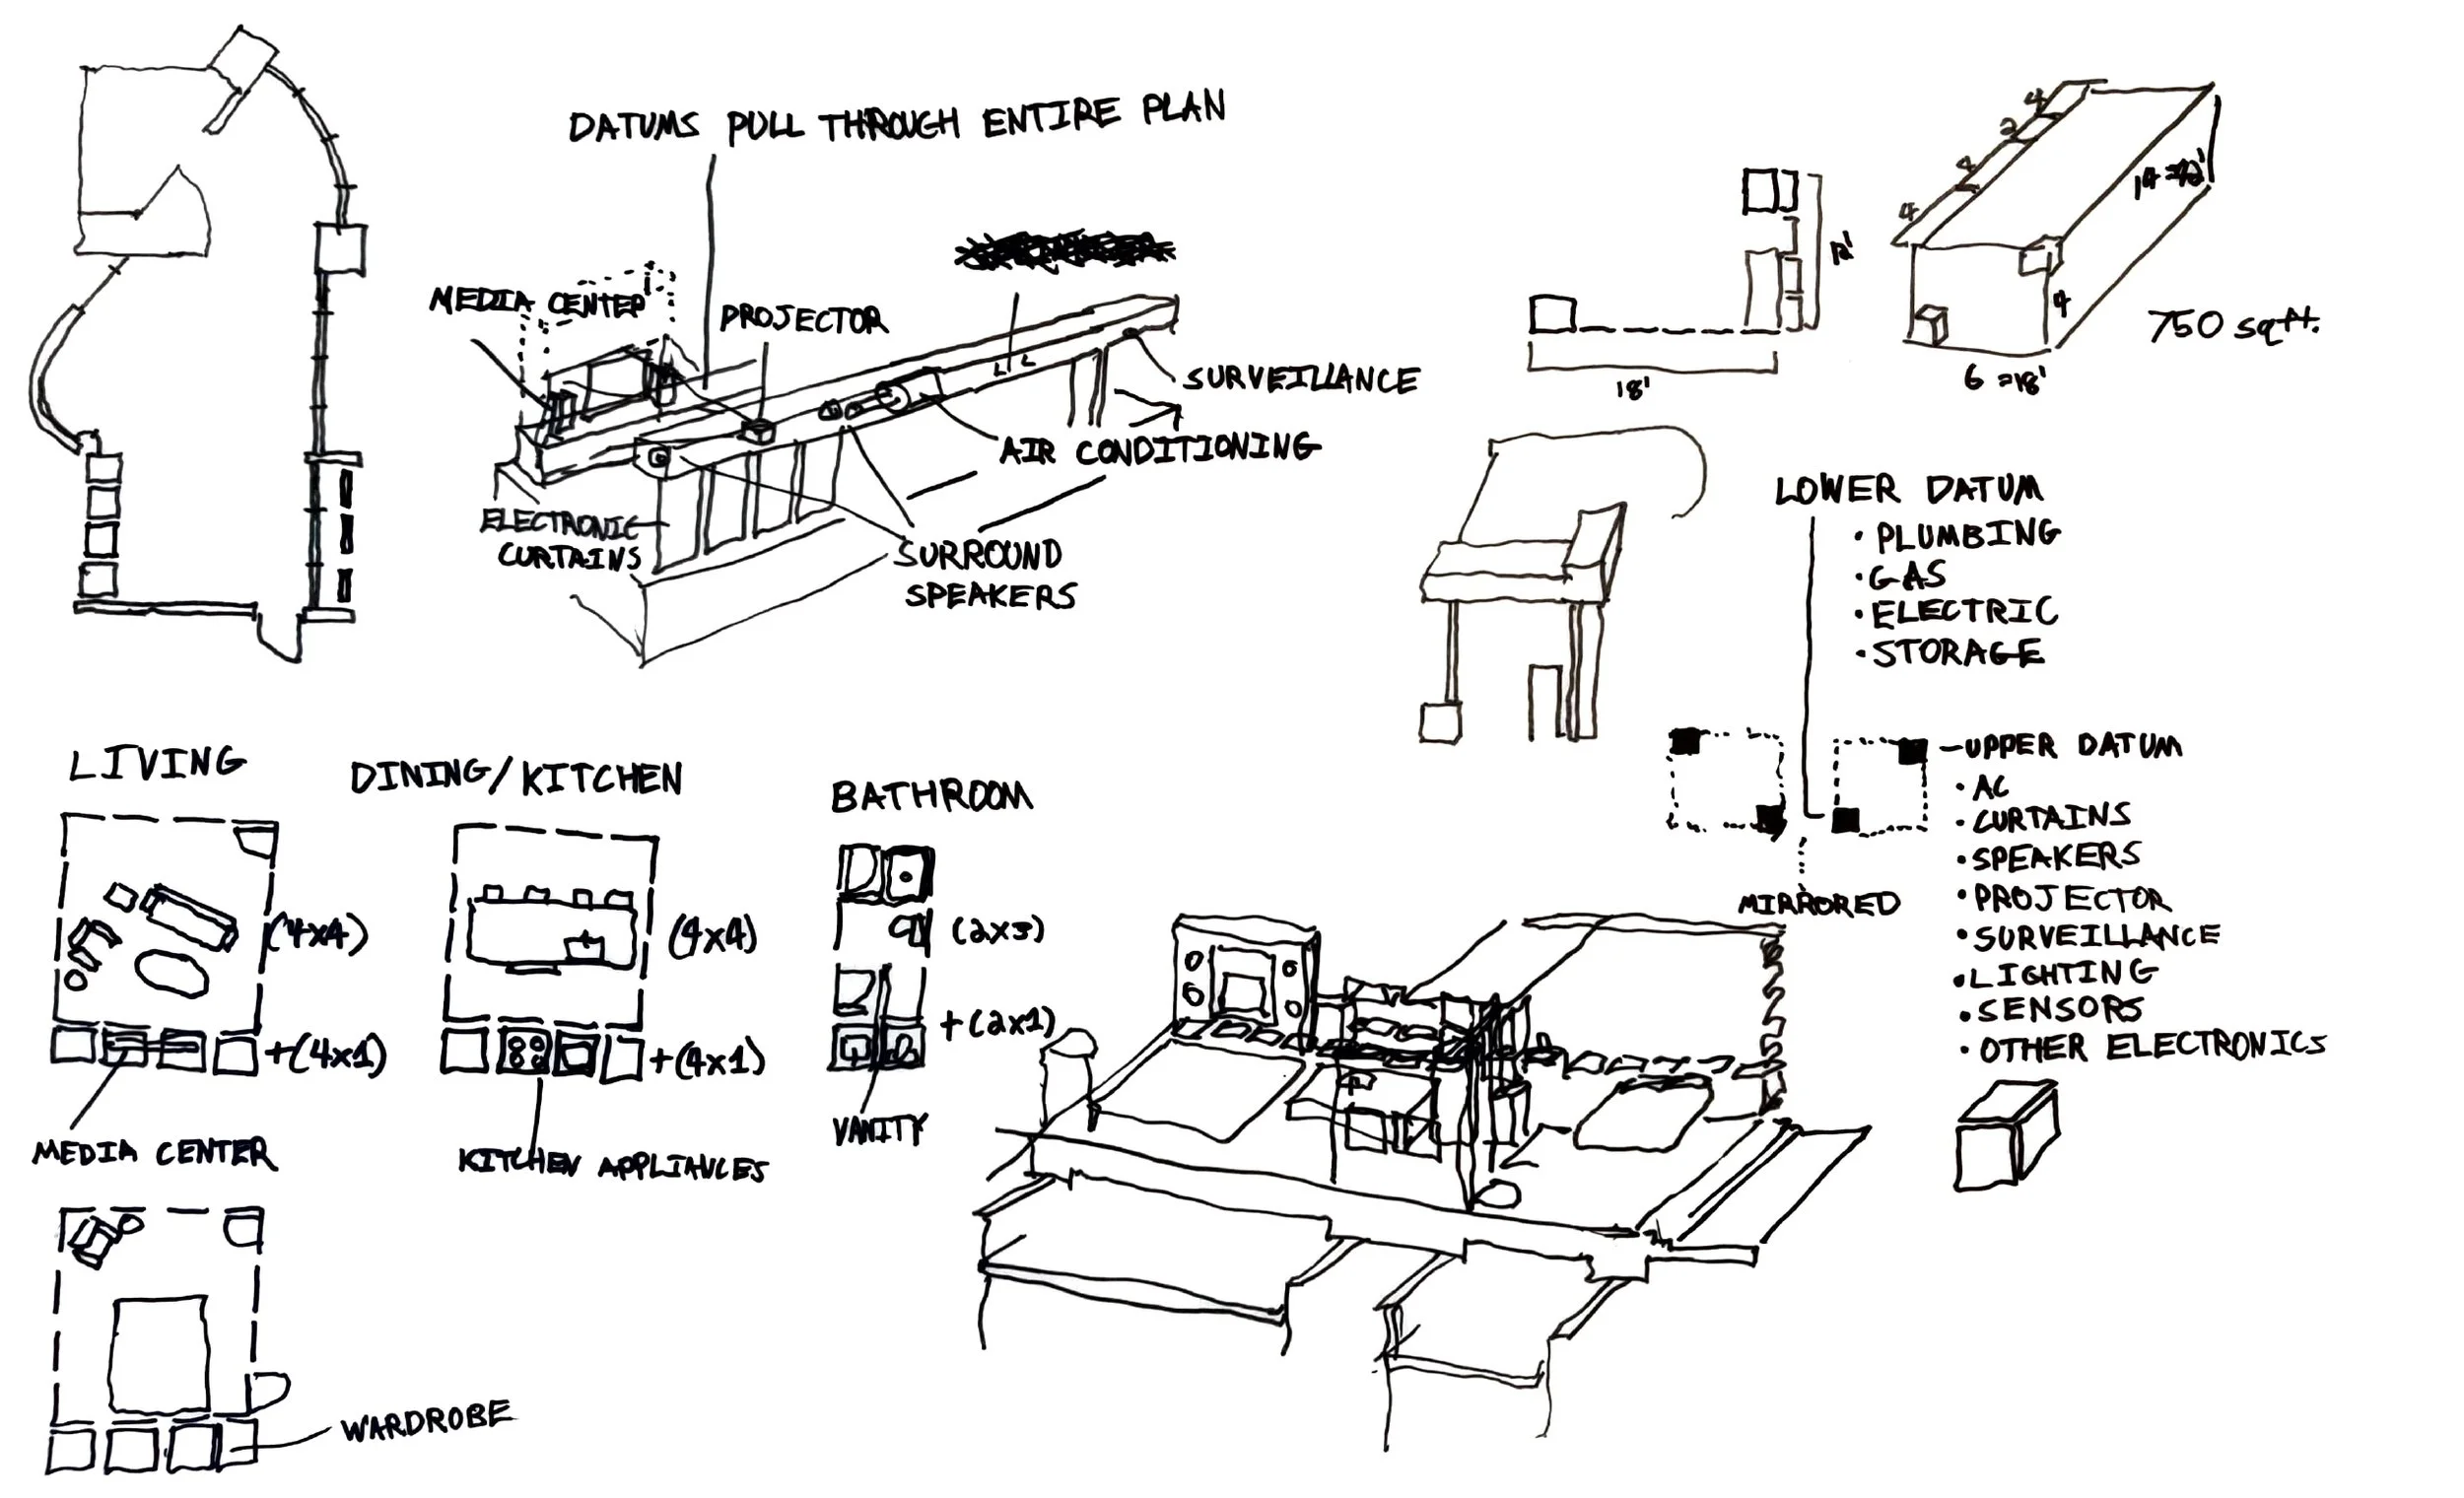 DATUMS PULL THROUGH ENTIRE PLAN
MEDIA CENTER
PROJECTOR
SURVEILLANCE
AIR CONDITIONING
ELECTRONIC
CURTAINS
SURROUND
SPEAKERS
4
2
4
4
4
6 =18'
750 sqft.
12'
18'
LOWER DATUM
• PLUMBING
• GAS
• ELECTRIC
• STORAGE
UPPER DATUM
• AC
• CURTAINS
• SPEAKERS
• PROJECTOR
• SURVEILLANCE
• LIGHTING
• SENSORS
• OTHER ELECTRONICS
MIRRORED
LIVING
(4x4)
+(4x1)
MEDIA CENTER
DINING/KITCHEN
(4x4)
+(4x1)
KITCHEN APPLIANCES
BATHROOM
(2x3)
+(2x1)
VANITY
WARDROBE